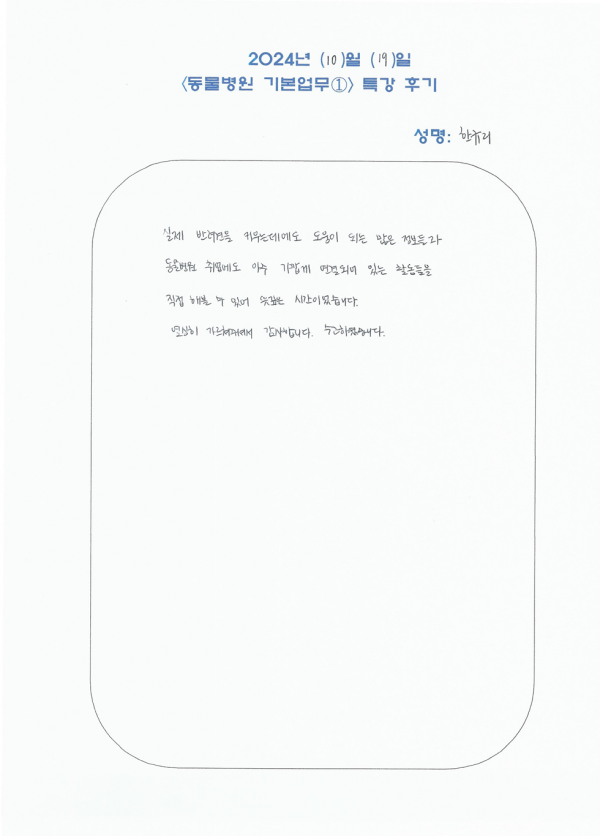 2024년 (10)월 (19)일
<동물병원 기본업무①> 특강 후기
성명: 한규리
실제 반려견을 키우는데에도 도움이 되는 많은 정보들과
동물병원 취업에도 아주 가깝게 연결되어 있는 활동들을
직접 해볼 수 있어 뜻깊은 시간이었습니다.
열심히 가르쳐주셔서 감사합니다. 수고하셨습니다.